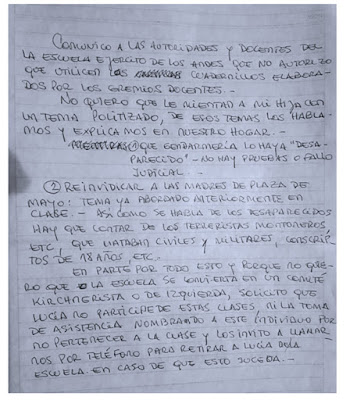 COMUNICO A LAS AUTORIDADES Y DOCENTES DEL
LA ESCUELA EJERCITO DE LOS ANDES QUE NO AUTORIZO
QUE UTILICEN LOS CUADERNILLOS ELABORA-
DOS POR LOS GREMIOS DOCENTES.-
NO QUIERO QUE LE MIENTAN A MI HIJA CON
UN TEMA POLITIZADO, DE ESOS TEMAS LOS HABLA-
MOS Y EXPLICAMOS EN NUESTRO HOGAR.-
MENTIRAS ① QUE GENDARMERÍA LO HAYA "DESA-
PARECIDO" - NO HAY PRUEBAS O FALLO
JUDICIAL.-
② REINVIDICAR A LAS MADRES DE PLAZA DE
MAYO: TEMA YA ABORDADO ANTERIORMENTE EN
CLASE.- ASÍ COMO SE HABLA DE LOS DESAPARECIDOS
HAY QUE CONTAR DE LOS TERRORISTAS MONTONEROS,
ETC, QUE MATABAN CIVILES Y MILITARES, CONSCRIP-
TOS DE 18 AÑOS, ETC.
EN PARTE POR TODO ESTO Y PORQUE NO QUIE-
RO QUE LA ESCUELA SE CONVIERTA EN UN COMITÉ
KIRCHNERISTA O DE IZQUIERDA, SOLICITO QUE
LUCÍA NO PARTICIPE DE ESTAS CLASES, NI LA TOMA
DE ASISTENCIA NOMBRANDO A ESTE INDIVIDUO POR
NO PERTENECER A LA CLASE Y LOS INVITO A LLAMAR-
NOS POR TELÉFONO PARA RETIRAR A LUCÍA DE LA
ESCUELA EN CASO DE QUE ESTO SUCEDA.-